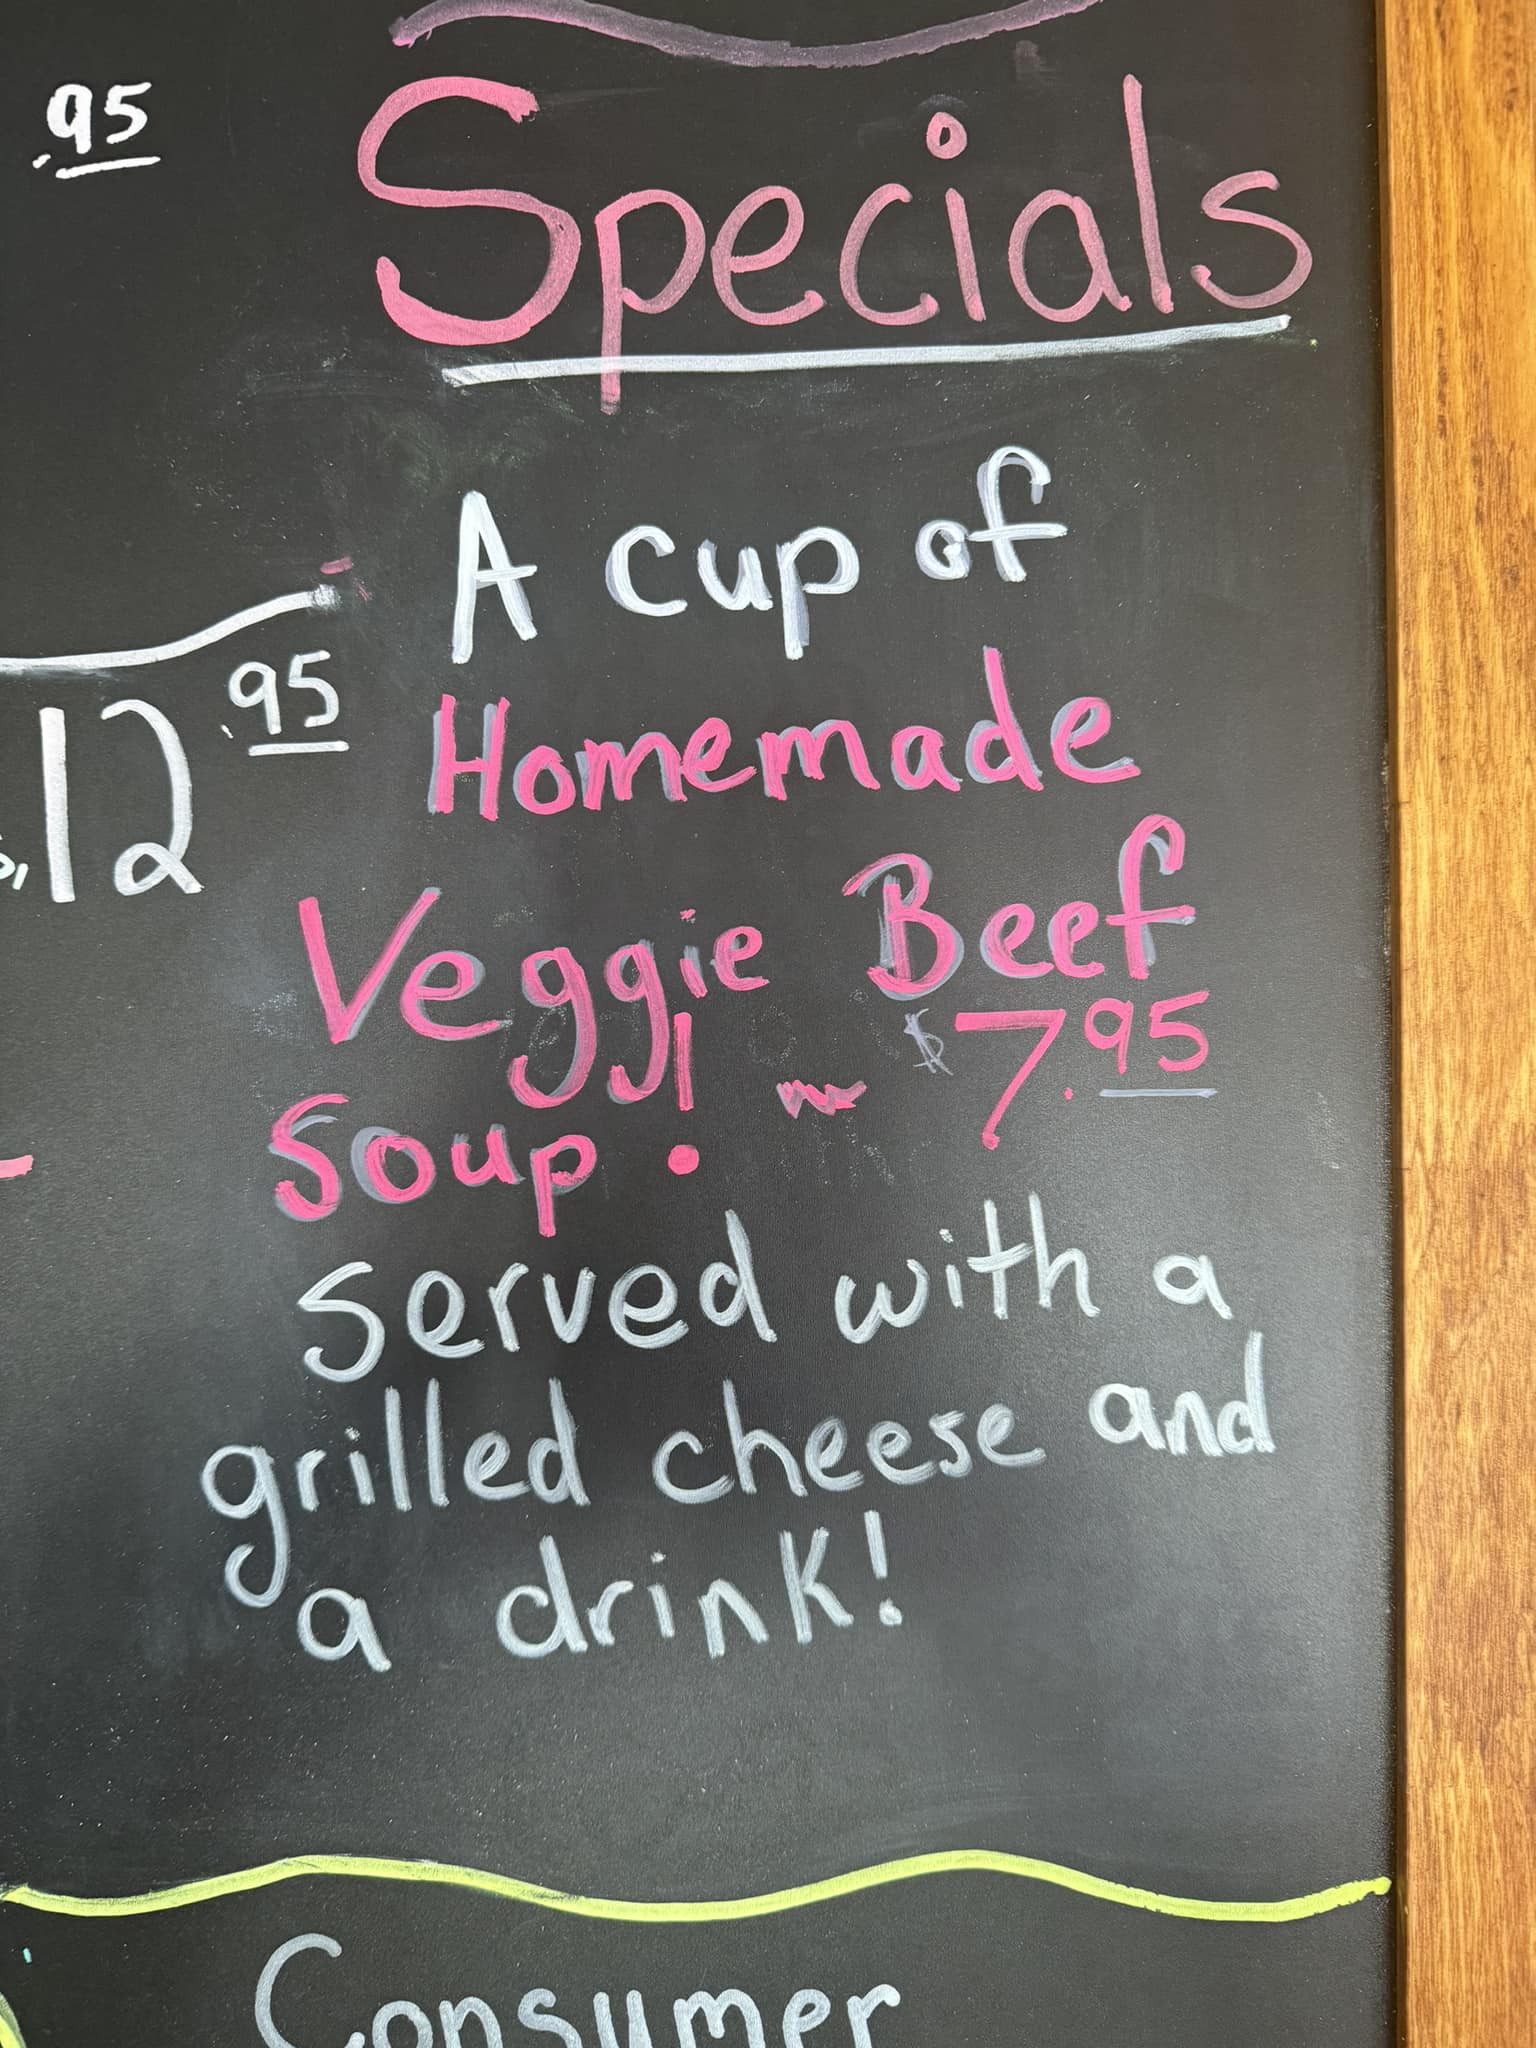 .95
Specials
A cup of
Homemade
.95
12
Veggie Beef
Soup! ~ $7.95
Served with a
grilled cheese and
a drink!
Consumer